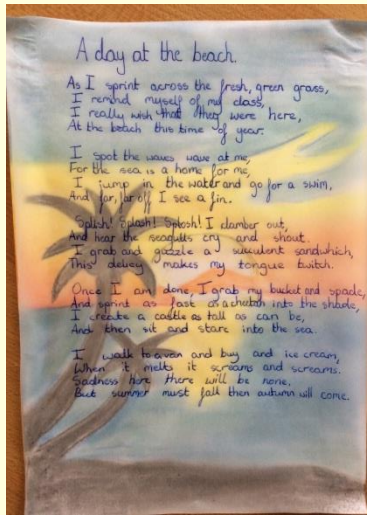 A day at the beach.
As I sprint across the fresh, green grass,
I remind myself of my class,
I really wish that they were here,
At the beach this time of year.
I spot the waves wave at me,
For the sea is a home for me,
I jump in the water and go for a swim,
And far, far off I see a fin.
Splish! Splash! Splosh! I clamber out,
And hear the seagulls cry and shout.
I grab and guzzle a succulent sandwhich,
This delicy makes my tongue twitch.
Once I am done, I grab my bucket and spade,
And sprint as fast as a cheetah into the shade,
I create a castle as tall as can be,
And then sit and stare into the sea.
I walk to a van and buy and ice cream,
When it melts it screams and screams.
Sadness here there will be none,
But summer must fall then autumn will come.